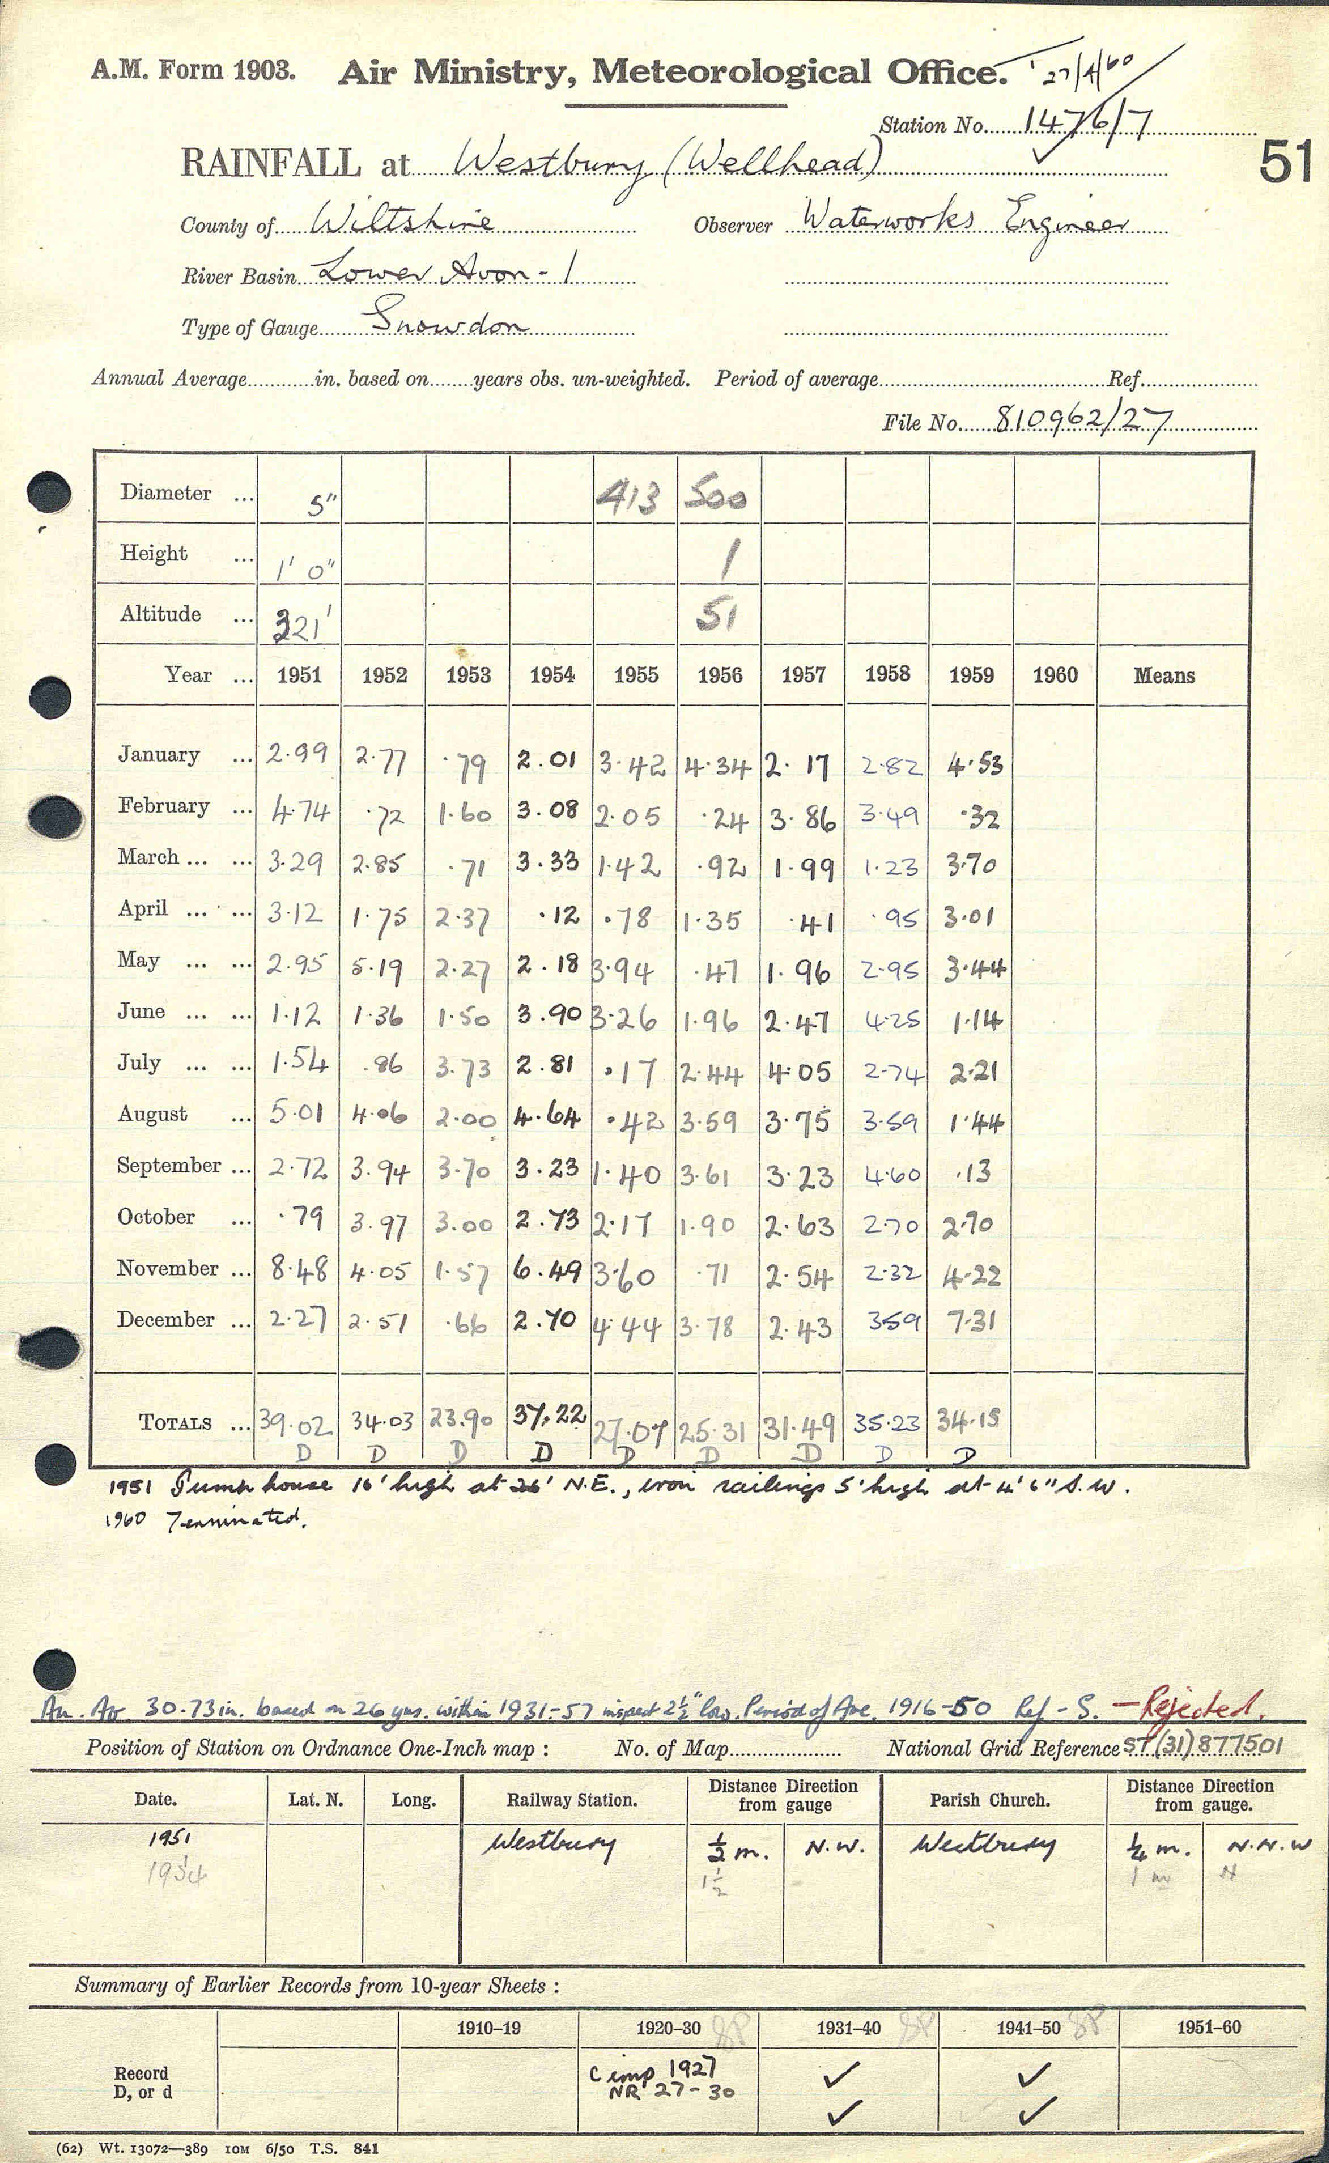 A.M. Form 1903. Air Ministry, Meteorological Office. 27/4/60
Station No. 1476/7
RAINFALL at Westbury (Wellhead)
51
County of Wiltshire Observer Waterworks Engineer
River Basin Lower Avon - 1
Type of Gauge Snowdon
Annual Average in. based on years obs. un-weighted. Period of average Ref.
File No. 810962/27
Diameter ... 5" 413 500
Height ... 1' 0" 1
Altitude ... 321' 51
Year ... 1951 1952 1953 1954 1955 1956 1957 1958 1959 1960 Means
January ... 2.99 2.77 .79 2.01 3.42 4.34 2.17 2.82 4.53
February ... 4.74 .72 1.60 3.08 2.05 .24 3.86 3.49 .32
March ... ... 3.29 2.85 .71 3.33 1.42 .92 1.99 1.23 3.70
April ... ... 3.12 1.75 2.37 .12 .78 1.35 .41 .95 3.01
May ... ... 2.95 5.19 2.27 2.18 3.94 .47 1.96 2.95 3.44
June ... ... 1.12 1.36 1.50 3.90 3.26 1.96 2.47 4.25 1.14
July ... ... 1.54 .86 3.73 2.81 .17 2.44 4.05 2.74 2.21
August ... 5.01 4.06 2.00 4.64 .42 3.59 3.75 3.59 1.44
September ... 2.72 3.94 3.70 3.23 1.40 3.61 3.23 4.60 .13
October ... .79 3.97 3.00 2.73 2.17 1.90 2.63 2.70 2.70
November ... 8.48 4.05 1.57 6.49 3.60 .71 2.54 2.32 4.22
December ... 2.27 2.51 .66 2.70 4.44 3.78 2.43 3.59 7.31
TOTALS ... 39.02 34.03 23.90 37.22 27.07 25.31 31.49 35.23 34.15
D D D D D D D D D
1951 Pump house 16' high at 26' N.E., iron railings 5' high at 4' 6" S.W.
1960 Terminated.
An. Av 30.73 in. based on 26 yrs. within 1931-57 inspect 2½" low. Period of Ave. 1916-50 Ref - S. — Rejected.
Position of Station on Ordnance One-Inch map : No. of Map National Grid Reference ST (31) 877501
Date. Lat. N. Long. Railway Station. Distance Direction from gauge Parish Church. Distance Direction from gauge.
1951 Westbury ½ m. N.W. Westbury ¼ m. N.N.W
1954 1½ 1 m N
Summary of Earlier Records from 10-year Sheets :
1910–19 1920–30 SP 1931–40 SP 1941–50 SP 1951–60
Record D, or d
Comp 1927 ✓ ✓
NR 27-30 ✓ ✓
(62) Wt. 13072—389 10M 6/50 T.S. 841